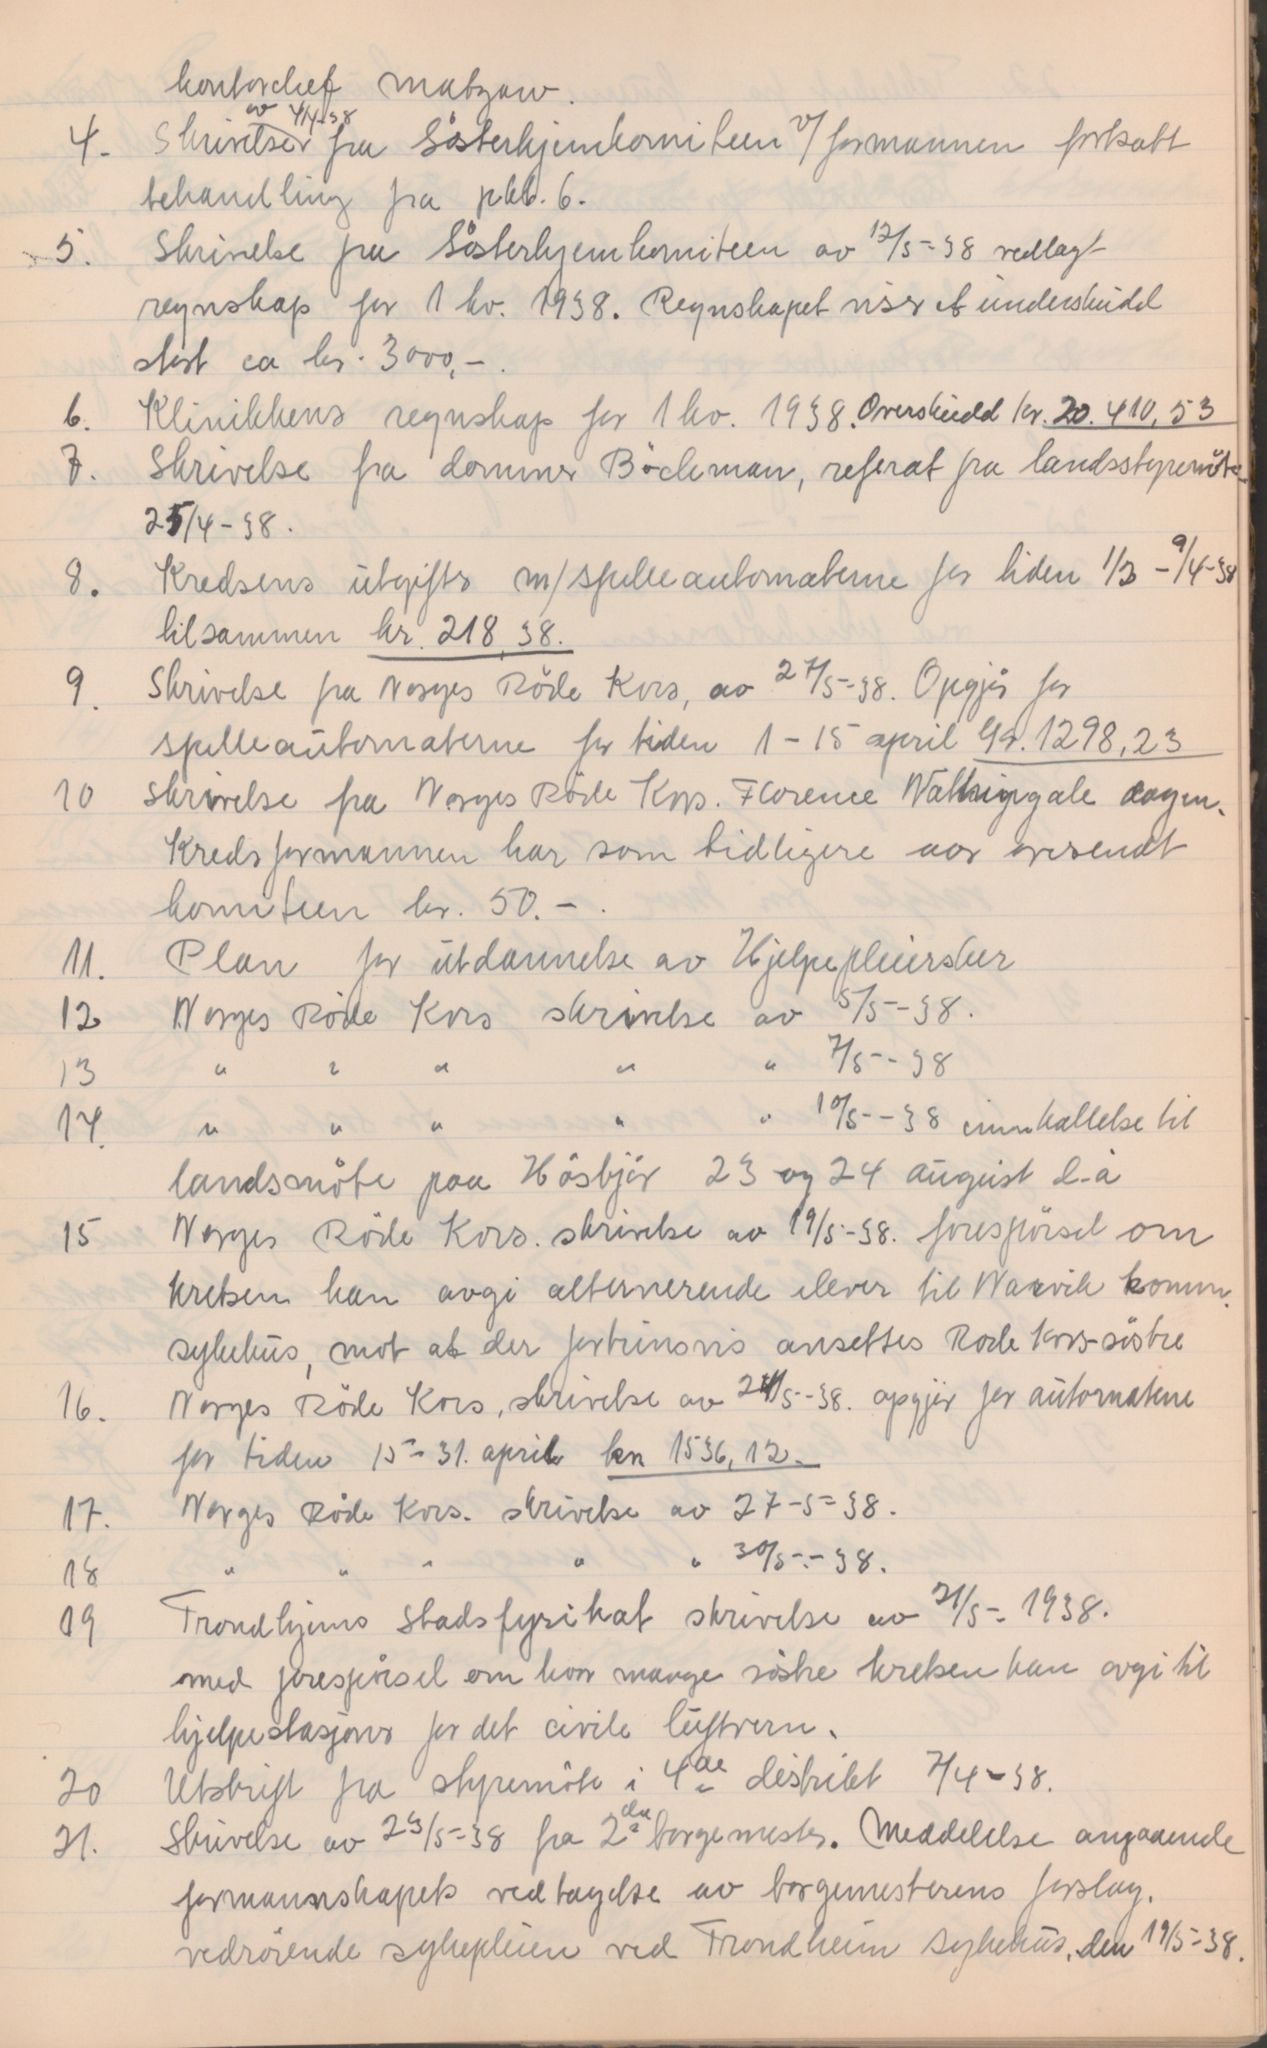 kontorchef Matzow.
av 4/4-38
4. Skrivelser fra Søsterhjemkomiteen v/formannen fortsatt
behandling fra pkt. 6.
5. Skrivelse fra Søsterhjemkomiteen av 12/5-38 vedlagt
regnskap for 1 kv. 1938. Regnskapet viser et underskudd
stort ca kr. 3000,-.
6. Klinikkens regnskap for 1 kv. 1938. Overskudd kr. 20.410,53
7. Skrivelse fra dommer Böckman, referat fra landsstyremöte
25/4-38.
8. Kredsens utgifter m/spilleautomaterne for tiden 1/3 - 9/4-38
tilsammen kr. 218,38.
9. Skrivelse fra Norges Röde Kors, av 27/5-38. Opgjör for
spilleautomaterne for tiden 1 - 15 april kr. 1298,23
10 Skrivelse fra Norges Röde Kors. Florence Nattingale dagen.
Kredsformannen har som tidligere aar oversendt
komiteen kr. 50.-.
11. Plan for utdannelse av Hjelpepleiersker
12 Norges Röde Kors skrivelse av 5/5-38.
13 " " " " " 7/5-38
14. " " " " " 10/5-38 innkallelse til
landsmöte paa Hösbjör 23 og 24 august d.å
15 Norges Röde Kors. skrivelse av 19/5-38. forespörsel om
kretsen kan avgi alternerende elever til Narvik komm.
sykehus, mot at der fortrinsvis ansettes Röde Kors-söstre
16. Norges Röde Kors, skrivelse av 24/5-38. opgjör for automatene
for tiden 15-31. april kr 1536,12.
17. Norges Röde Kors. skrivelse av 27-5-38.
18 " " " " " 30/5-38.
19 Trondhjems Stadsfysikat skrivelse av 21/5-1938.
med forespörsel om hvor mange söstre kretsen kan avgi til
hjelpestasjoner for det civile luftvern.
20 Utskrift fra styremöte i 4de distrikt 7/4-38.
21. Skrivelse av 23/5-38 fra 2den borgemester. Meddelelse angaaende
formannskapets vedtagelse av borgemesterens forslag.
vedrörende sykepleien ved Trondheim Sykehus, den 19/5-38.